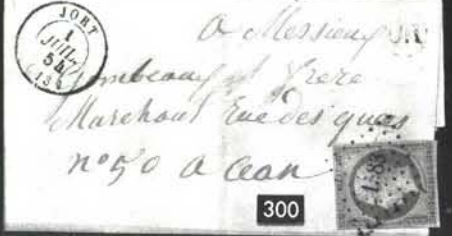 JORT
1
JUIL.
54
(13)
a Messieurs
et frere
Marchant Rue des quais
n° 50 a Caan
300